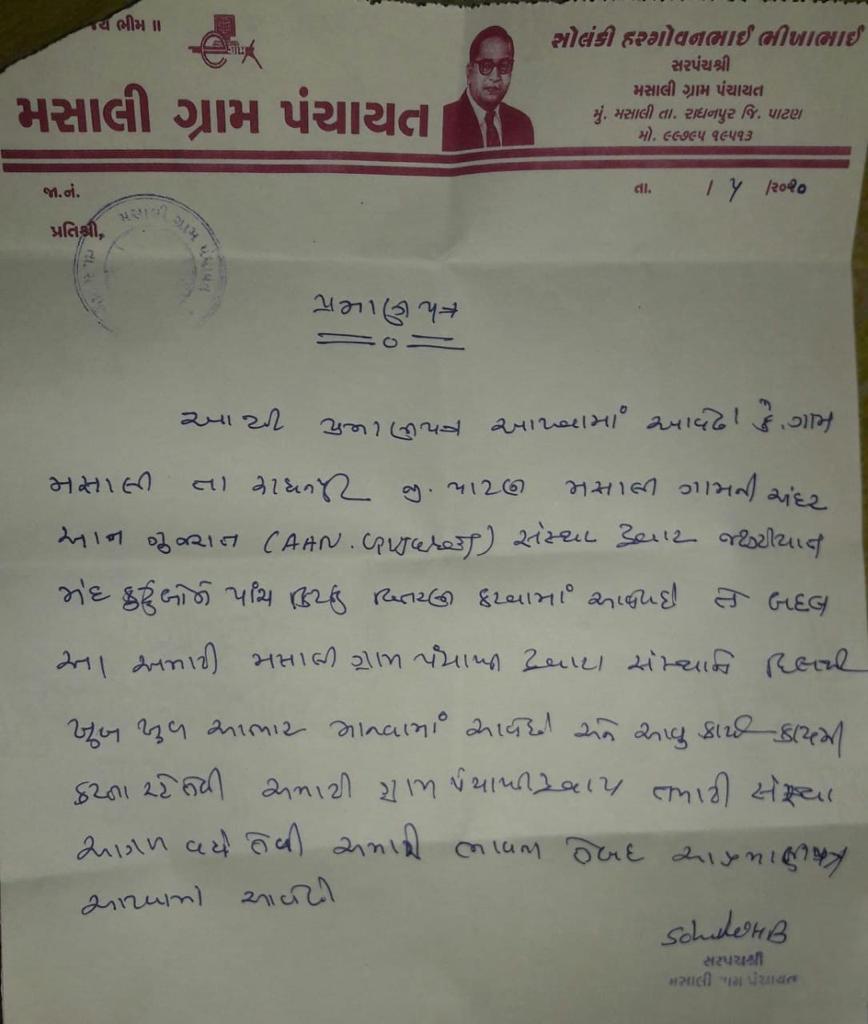 જય ભીમ ॥
સોલંકી હરગોવનભાઈ ભીખાભાઈ
સરપંચશ્રી
મસાલી ગ્રામ પંચાયત
મુ. મસાલી તા. રાધનપુર જિ. પાટણ
મો. ૯૯૭૯૫ ૧૯૫૧૩
મસાલી ગ્રામ પંચાયત
જા.નં.
તા. / ૫ /૨૦૨૦
પ્રતિશ્રી,
મસાલી ગ્રામ પંચાયત
પ્રમાણપત્ર
આથી પ્રમાણપત્ર આપવામાં આવેછે કે. ગામ
મસાલી તા રાધનપુર જી. પાટણ મસાલી ગામની અંદર
આન ગુજરાત (AAN. GUJARAT) સંસ્થા દ્વારા જરૂરીયાત
મંદ કુટુંબોને પાંચ કિટનું વિતરણ કરવામાં આવેલછે તે બદલ
આ અમારી મસાલી ગ્રામ પંચાયત દ્વારા સંસ્થાને દિલથી
ખુબ ખુબ આભાર માનવામાં આવેછે અને આવુ કાર્ય કાયમી
કરતા રહે તેવી અમારી ગ્રામ પંચાયત દ્વારા તમારી સંસ્થા
આગળ વધે તેવી અમારી ભાવના સાથે આ પ્રમાણપત્ર
આપવામાં આવેછે
સરપંચશ્રી
મસાલી ગ્રામ પંચાયત